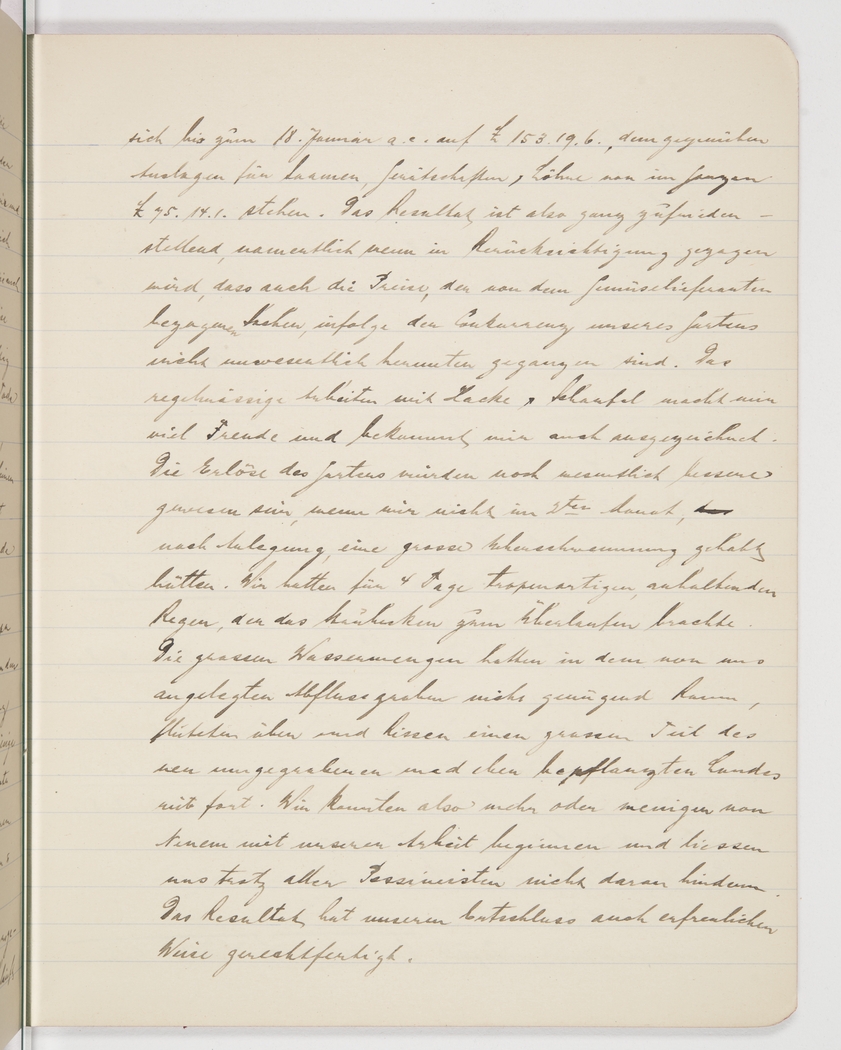 sich bis zum 18. Januar a.c. auf £ 153.19.6., dem gegenüber
Auslagen für Saamen, Gerätschaften, Löhne von im ganzen
£ 75.14.1. stehen. Das Resultat ist also ganz zufrieden-
stellend, namentlich wenn in Berücksichtigung gezogen
wird, dass auch die Preise, der von dem Gemüselieferanten
bezogenen Sachen, infolge der Conkurrenz unseres Gartens
nicht unwesentlich herunter gegangen sind. Das
regelmässige Arbeiten mit Hacke & Schaufel macht mir
viel Freude und bekommt mir auch ausgezeichnet.
Die Erlöse des Gartens würden noch wesentlich bessere
gewesen sein, wenn wir nicht im 2ten Monat,
nach Anlegung, eine grosse Überschwemmung gehabt
hätten. Wir hatten für 4 Tage tropenartigen, anhaltenden
Regen, der das Staubecken zum Überlaufen brachte.
Die grossen Wassermengen hatten in dem von uns
angelegten Abflussgraben nicht genügend Raum,
fluteten über und rissen einen grossen Teil des
neu umgegrabenen und eben bepflanzten Landes
mit fort. Wir konnten also mehr oder weniger von
Neuem mit unserer Arbeit beginnen und liessen
uns trotz aller Pessimisten nicht daran hindern.
Das Resultat hat unseren Entschluss auch erfreulicher
Weise gerechtfertigt.